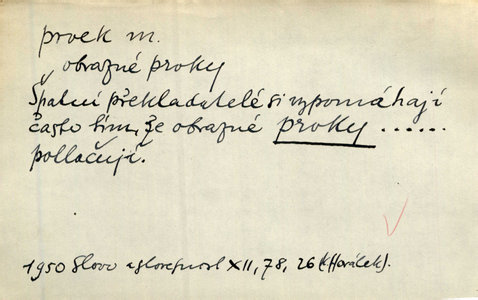 prvek m.
obrazné prvky
Špatní překladatelé si vypomáhají
často tím, že obrazné prvky ......
potlačují.
1950 Slovo a slovesnost XII, 78, 26 (K. Horálek).